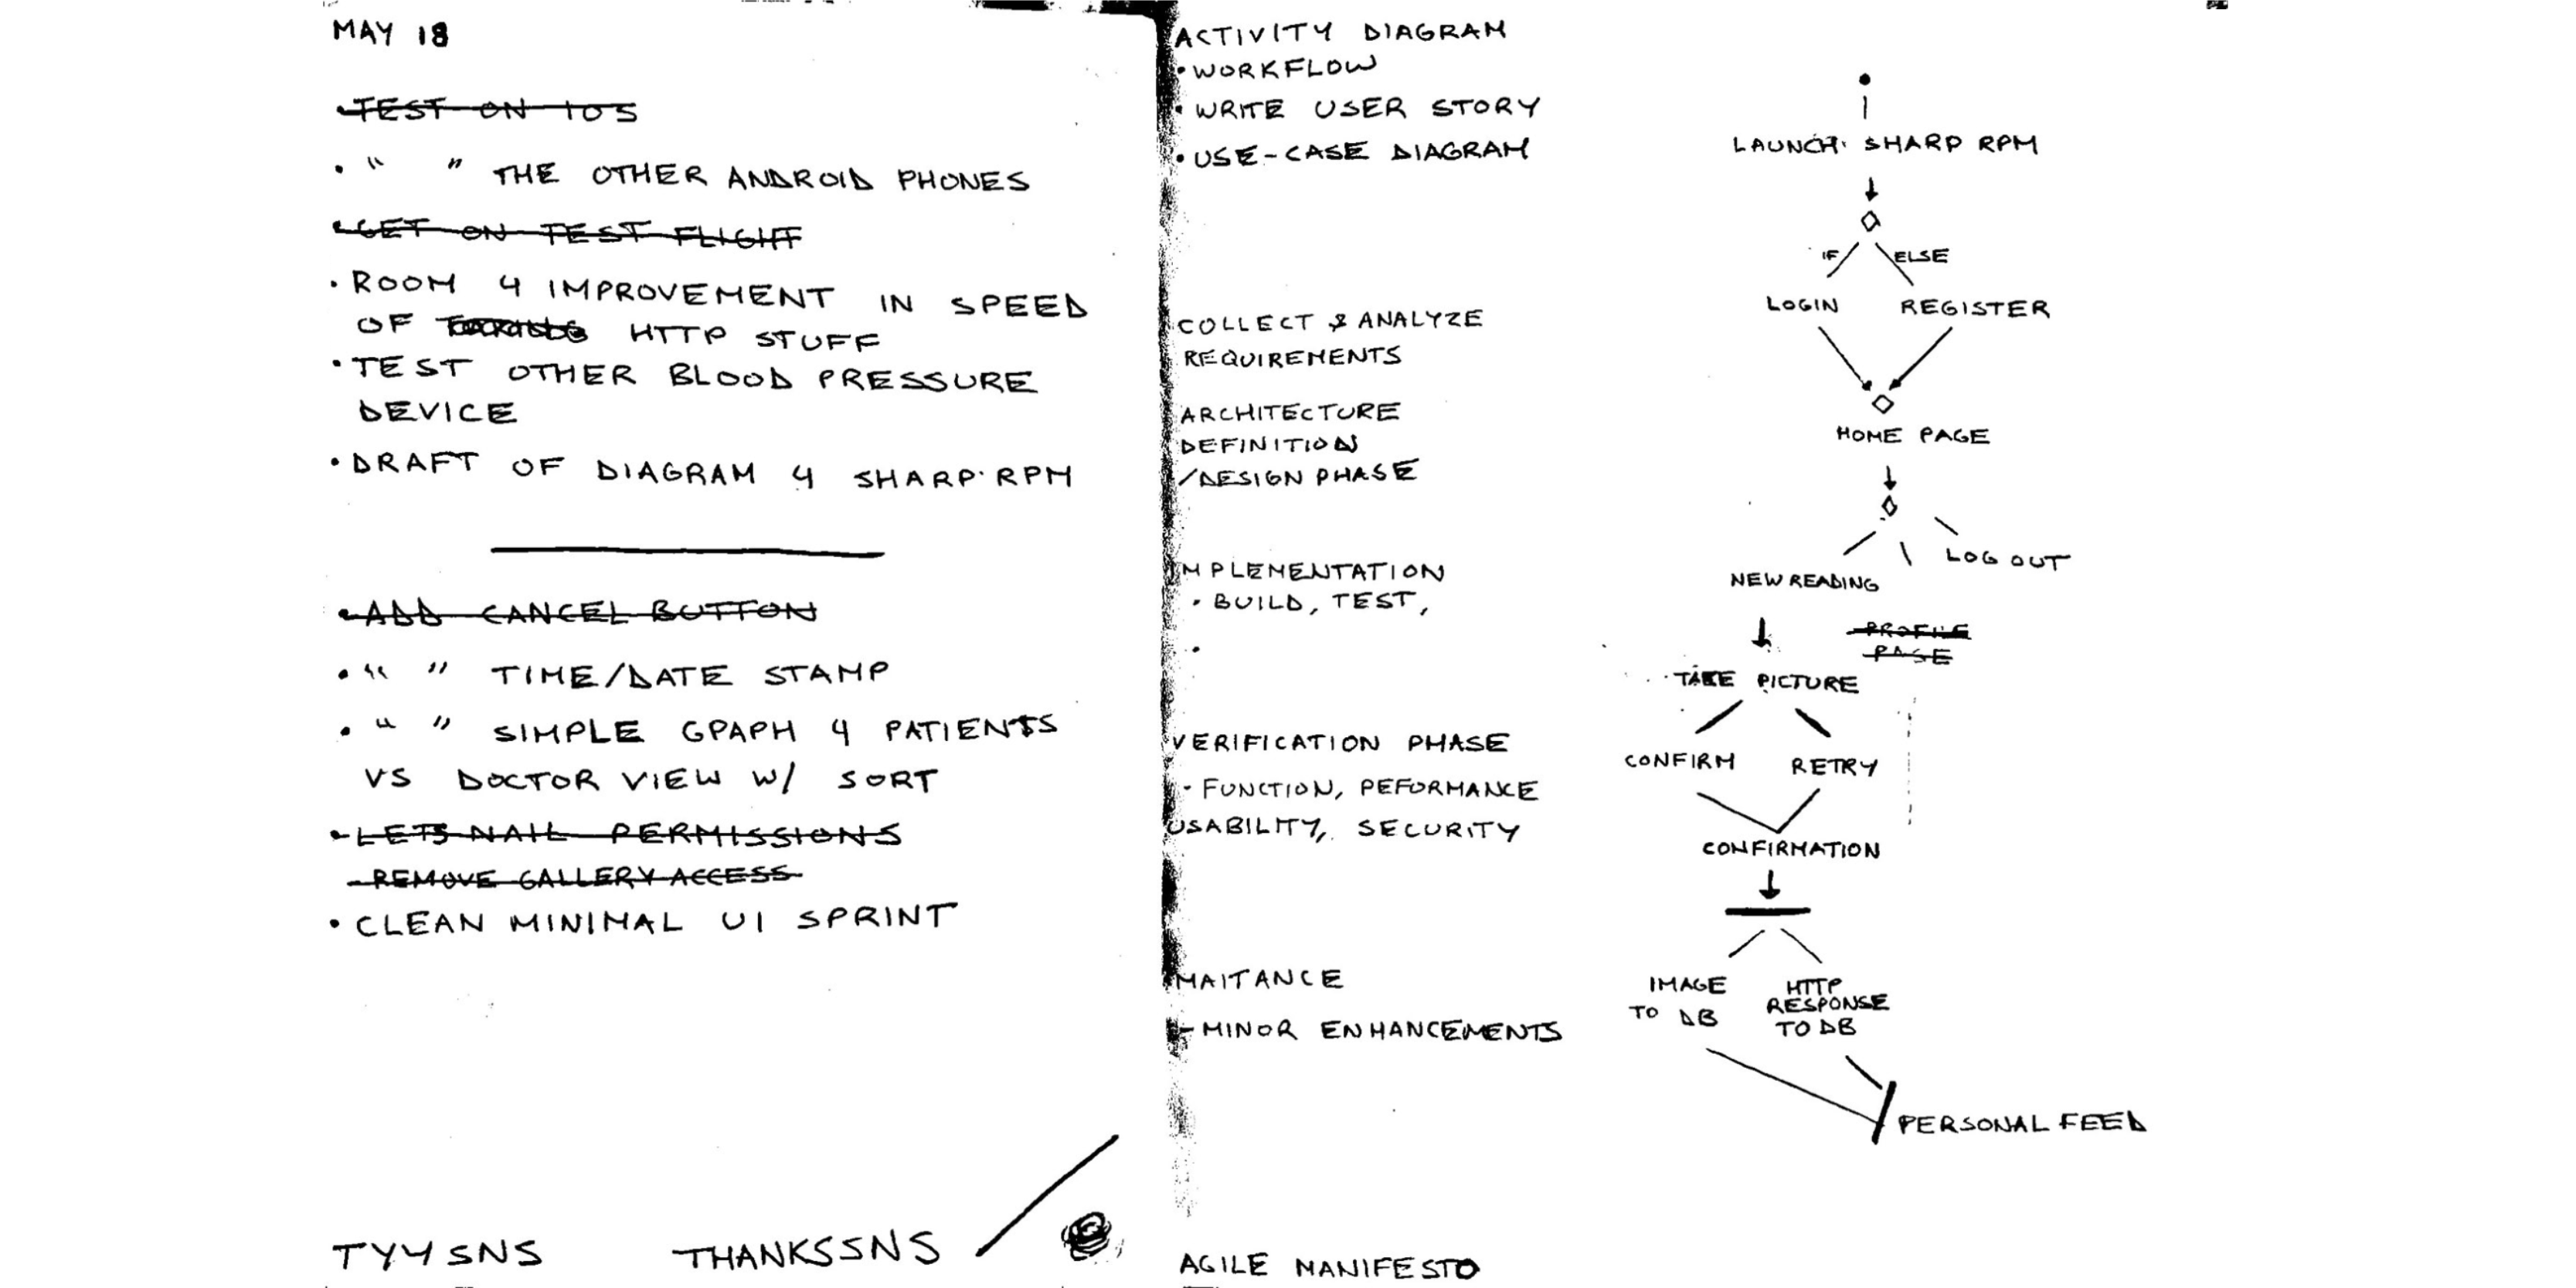 MAY 18
• TEST ON IOS
• " " THE OTHER ANDROID PHONES
• GET ON TEST FLIGHT
• ROOM 4 IMPROVEMENT IN SPEED
OF HTTP STUFF
• TEST OTHER BLOOD PRESSURE
DEVICE
• DRAFT OF DIAGRAM 4 SHARP RPM
• ADD CANCEL BUTTON
• " " TIME/DATE STAMP
• " " SIMPLE GPAPH 4 PATIENTS
VS DOCTOR VIEW W/ SORT
• LETS NAIL PERMISSIONS
- REMOVE GALLERY ACCESS
• CLEAN MINIMAL UI SPRINT
TY4SNS THANKSSNS
ACTIVITY DIAGRAM
• WORKFLOW
• WRITE USER STORY
• USE-CASE DIAGRAM
COLLECT & ANALYZE
REQUIREMENTS
ARCHITECTURE
DEFINITION
/DESIGN PHASE
IMPLEMENTATION
• BUILD, TEST,
•
VERIFICATION PHASE
- FUNCTION, PEFORMANCE
USABILITY, SECURITY
MAITANCE
- MINOR ENHANCEMENTS
AGILE MANIFESTO
LAUNCH SHARP RPM
IF ELSE
LOGIN REGISTER
HOME PAGE
LOG OUT
NEW READING
PROFILE
PAGE
TAKE PICTURE
CONFIRM RETRY
CONFIRMATION
IMAGE
TO DB
HTTP
RESPONSE
TO DB
PERSONAL FEED